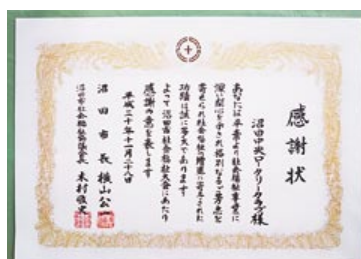 感謝状
沼田中央ロータリークラブ様
あなたは平素より社会福祉事業に
深い関心を示され格別なるご芳志を
寄せられ社会福祉の増進に寄与された
功績は誠に多大であります
よって沼田市社会福祉大会にあたり
感謝の意を表します
平成二十年十一月二十八日
沼田市長 横山公一
沼田市社会福祉協議会長 木村